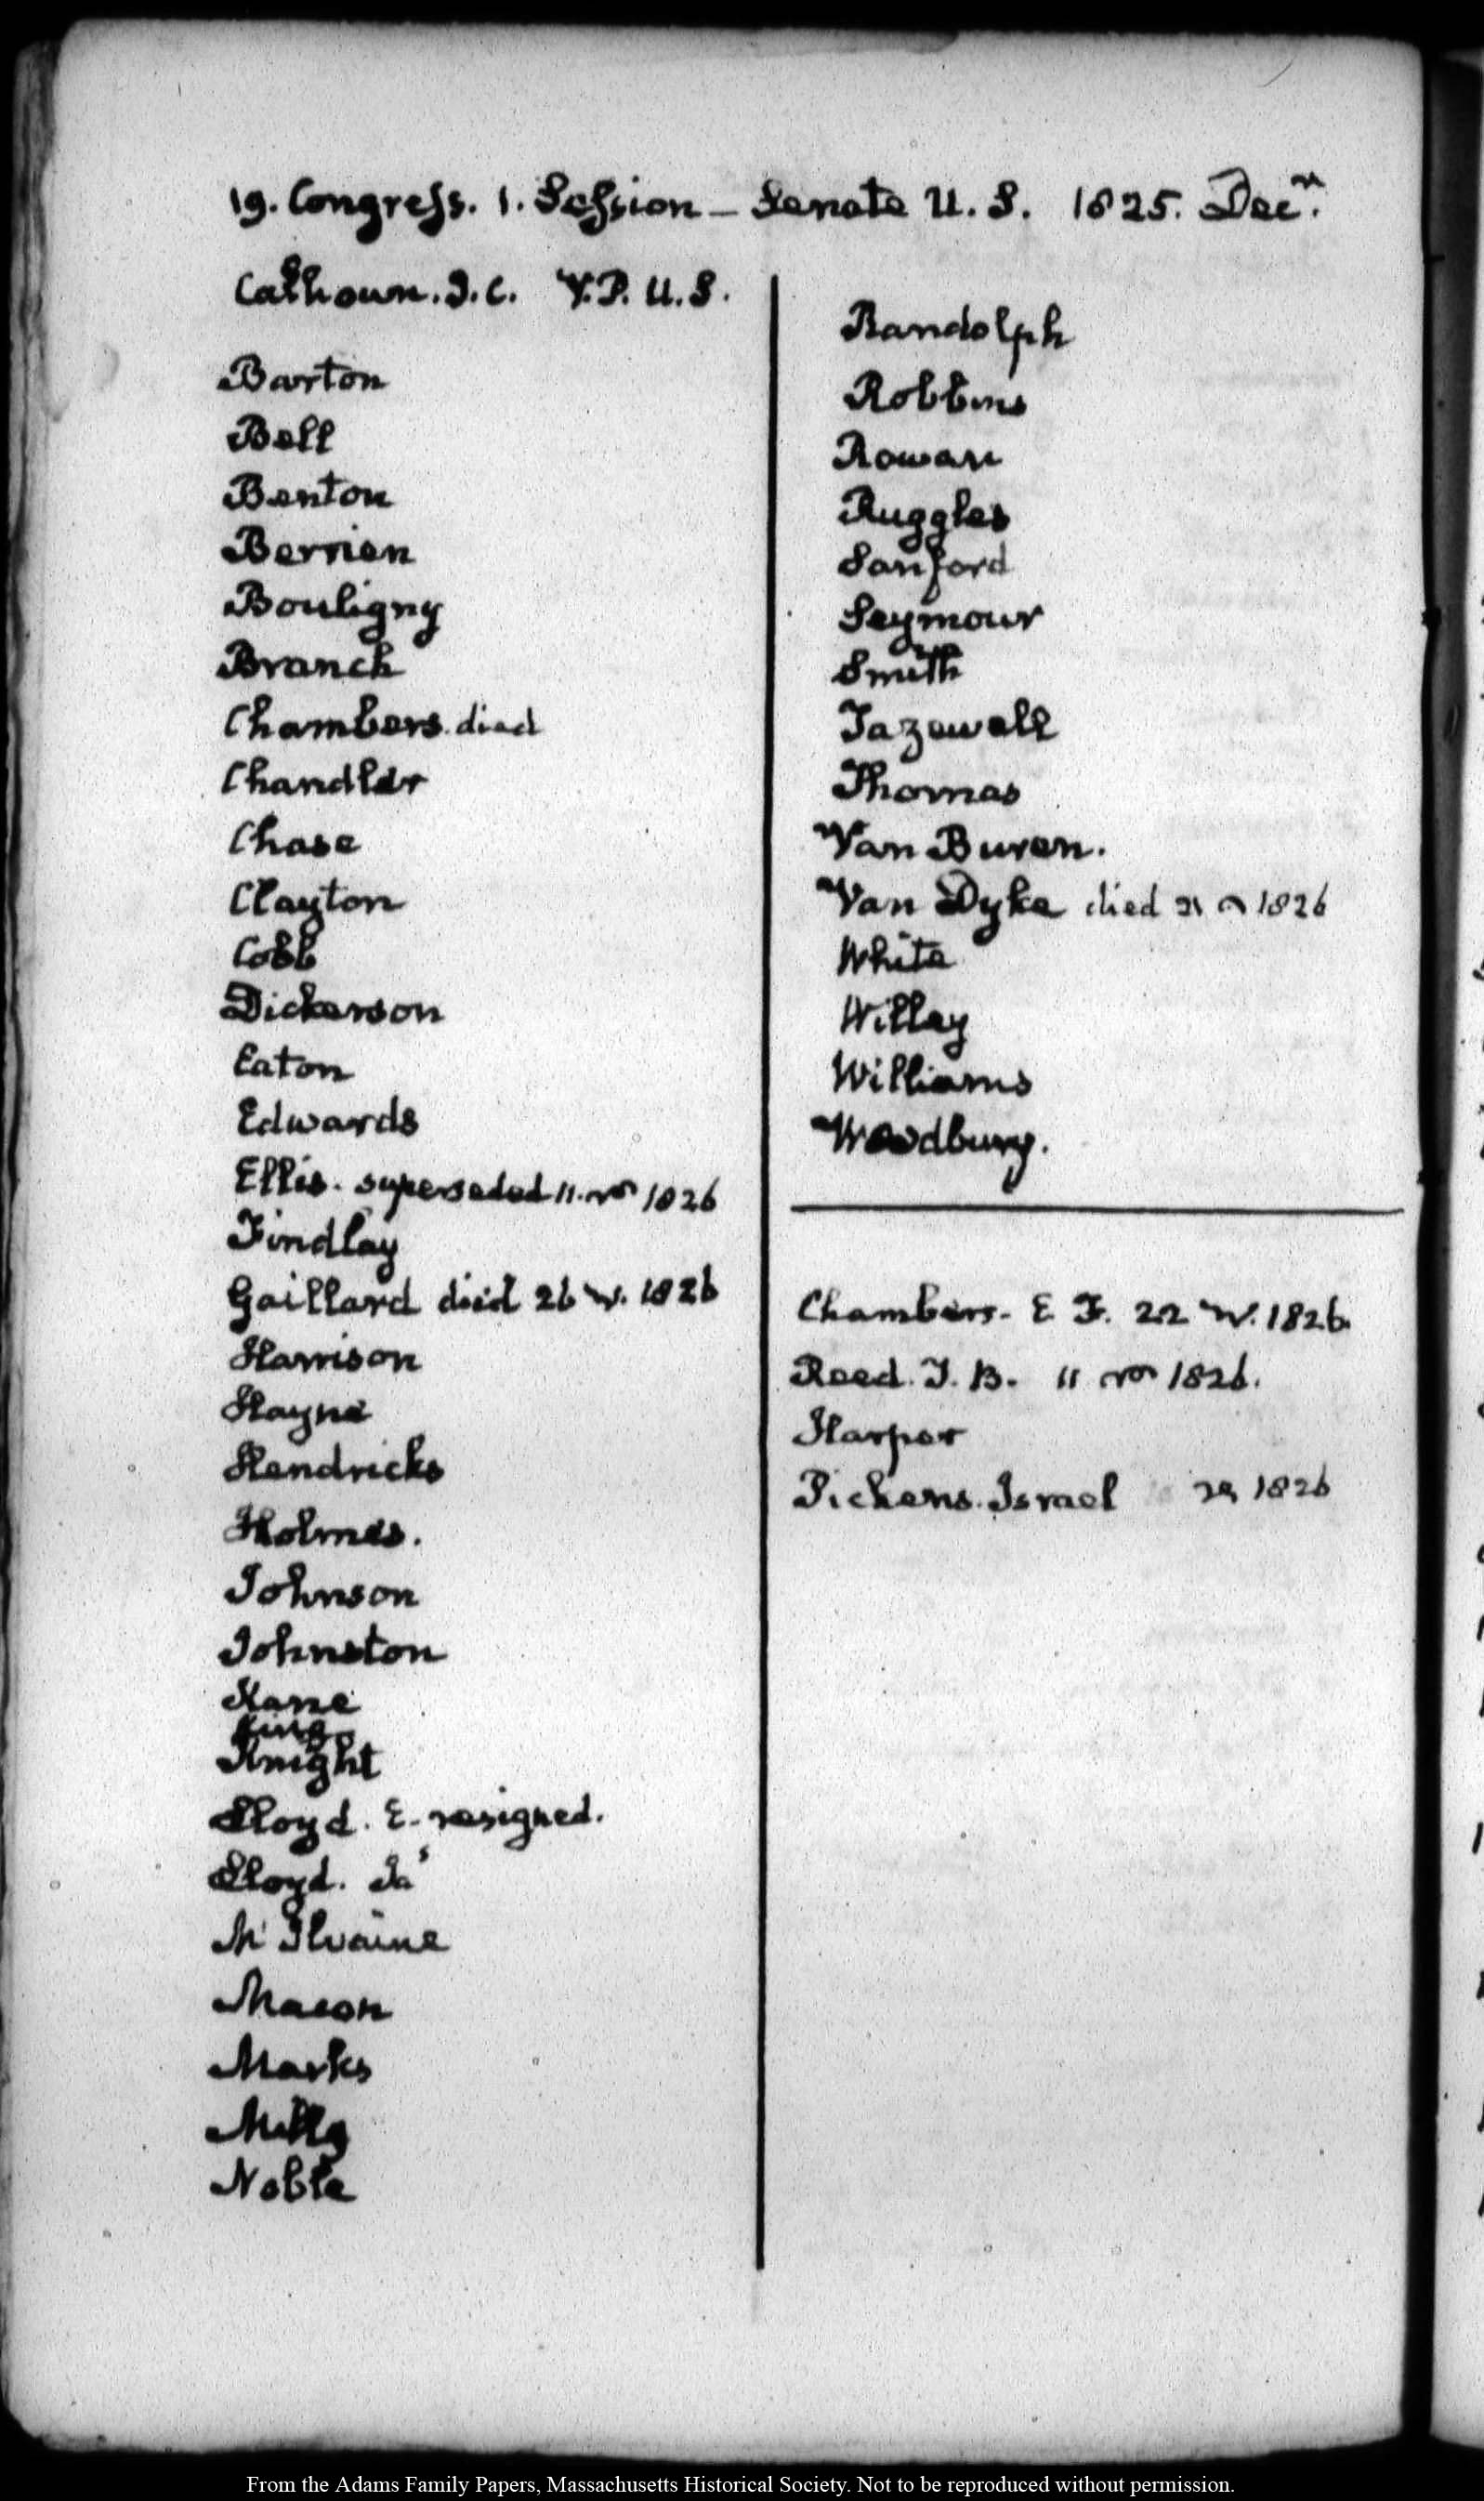 19. Congress. 1. Session — Senate U. S. 1825. Decr.
Calhoun. J. C. V. P. U. S.
Barton
Bell
Benton
Berrien
Bouligny
Branch
Chambers. died
Chandler
Chase
Clayton
Cobb
Dickerson
Eaton
Edwards
Ellis. superseded 11. 1826
Findlay
Gaillard died 26 1826
Harrison
Hayne
Hendricks
Holmes.
Johnson
Johnston
Kane
King
Knight
Lloyd. E. resigned.
Lloyd. Jas
McIlvaine
Macon
Marks
Mills
Noble
Randolph
Robbins
Rowan
Ruggles
Sanford
Seymour
Smith
Tazewell
Thomas
Van Buren.
Van Dyke died 1826
White
Willey
Williams
Woodbury.
Chambers. E. F. 22 1826
Reed. T. B. 11 1826.
Harper
Pickens. Israel 1826
From the Adams Family Papers, Massachusetts Historical Society. Not to be reproduced without permission.